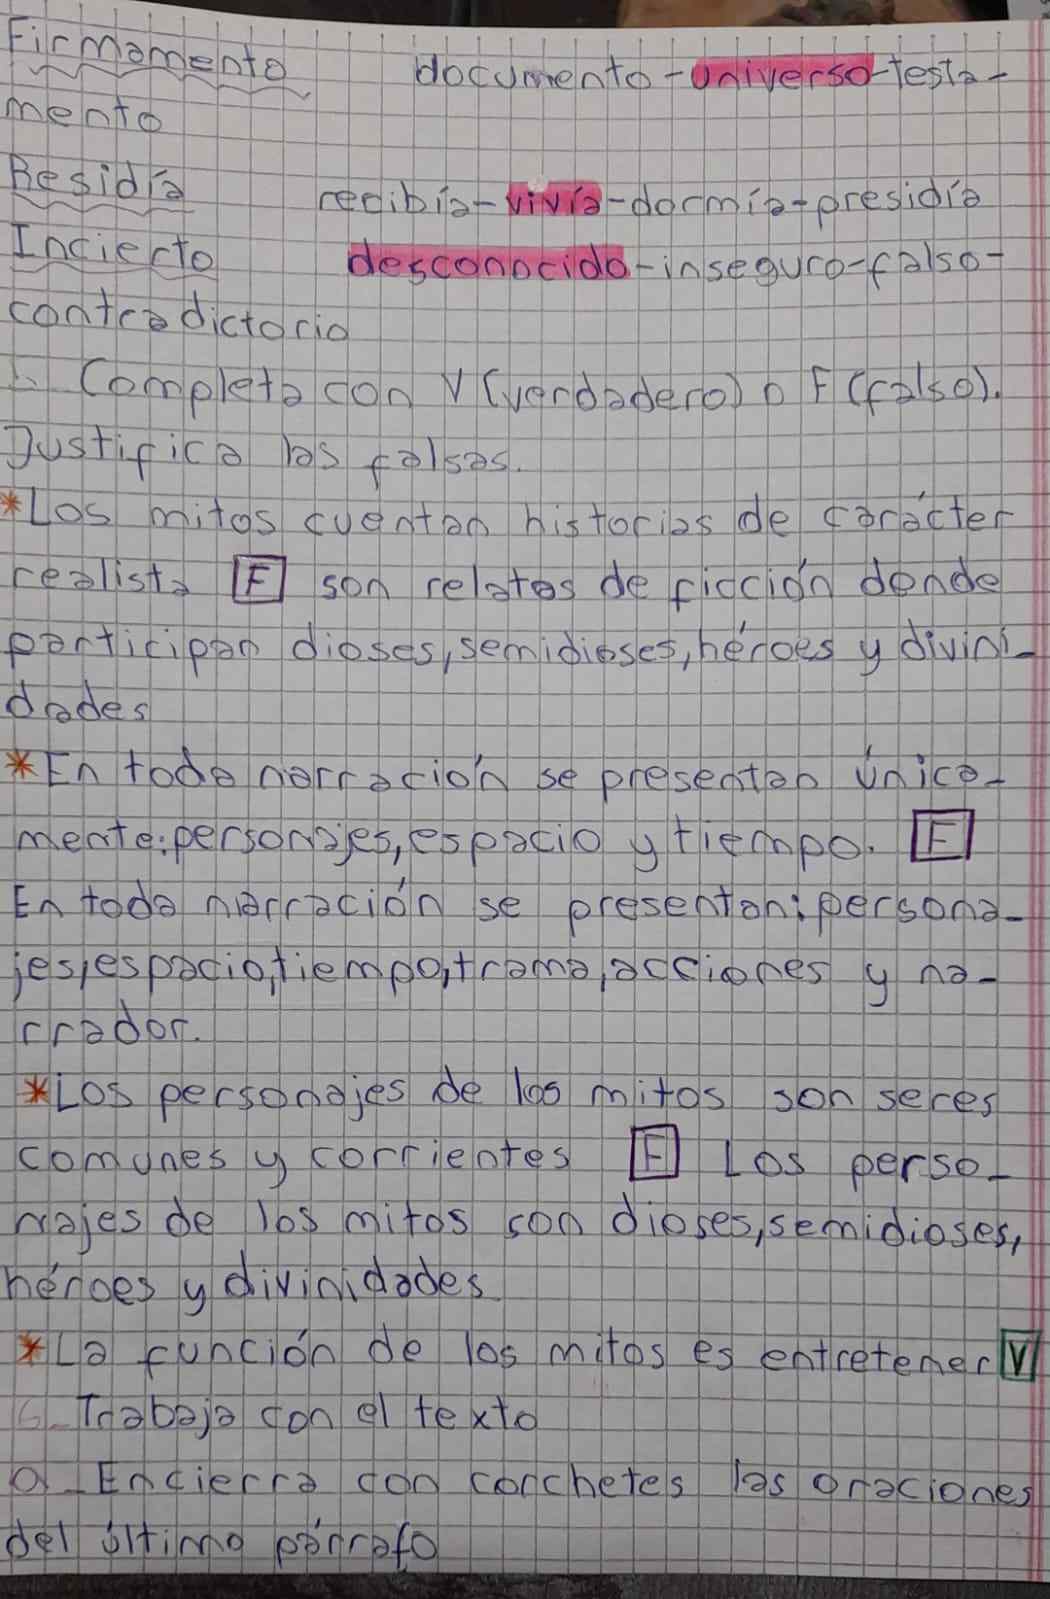 Firmamento documento-universo-testa-
mento
Residía recibía-vivía-dormía-presidía
Incierto desconocido-inseguro-falso-
contradictorio
5. Completa con V (verdadero) o F (falso).
Justifica las falsas.
*Los mitos cuentan historias de carácter
realista F son relatos de ficción donde
participan dioses, semidioses, héroes y divini-
dades
*En toda narración se presentan única-
mente: personajes, espacio y tiempo. F
En toda narración se presentan: persona-
jes, espacio, tiempo, trama, acciones y na-
rrador.
*Los personajes de los mitos son seres
comunes y corrientes F Los perso-
najes de los mitos son dioses, semidioses,
héroes y divinidades
*La función de los mitos es entretener V
6_ Trabaja con el texto
a_ Encierra con corchetes las oraciones
del último párrafo